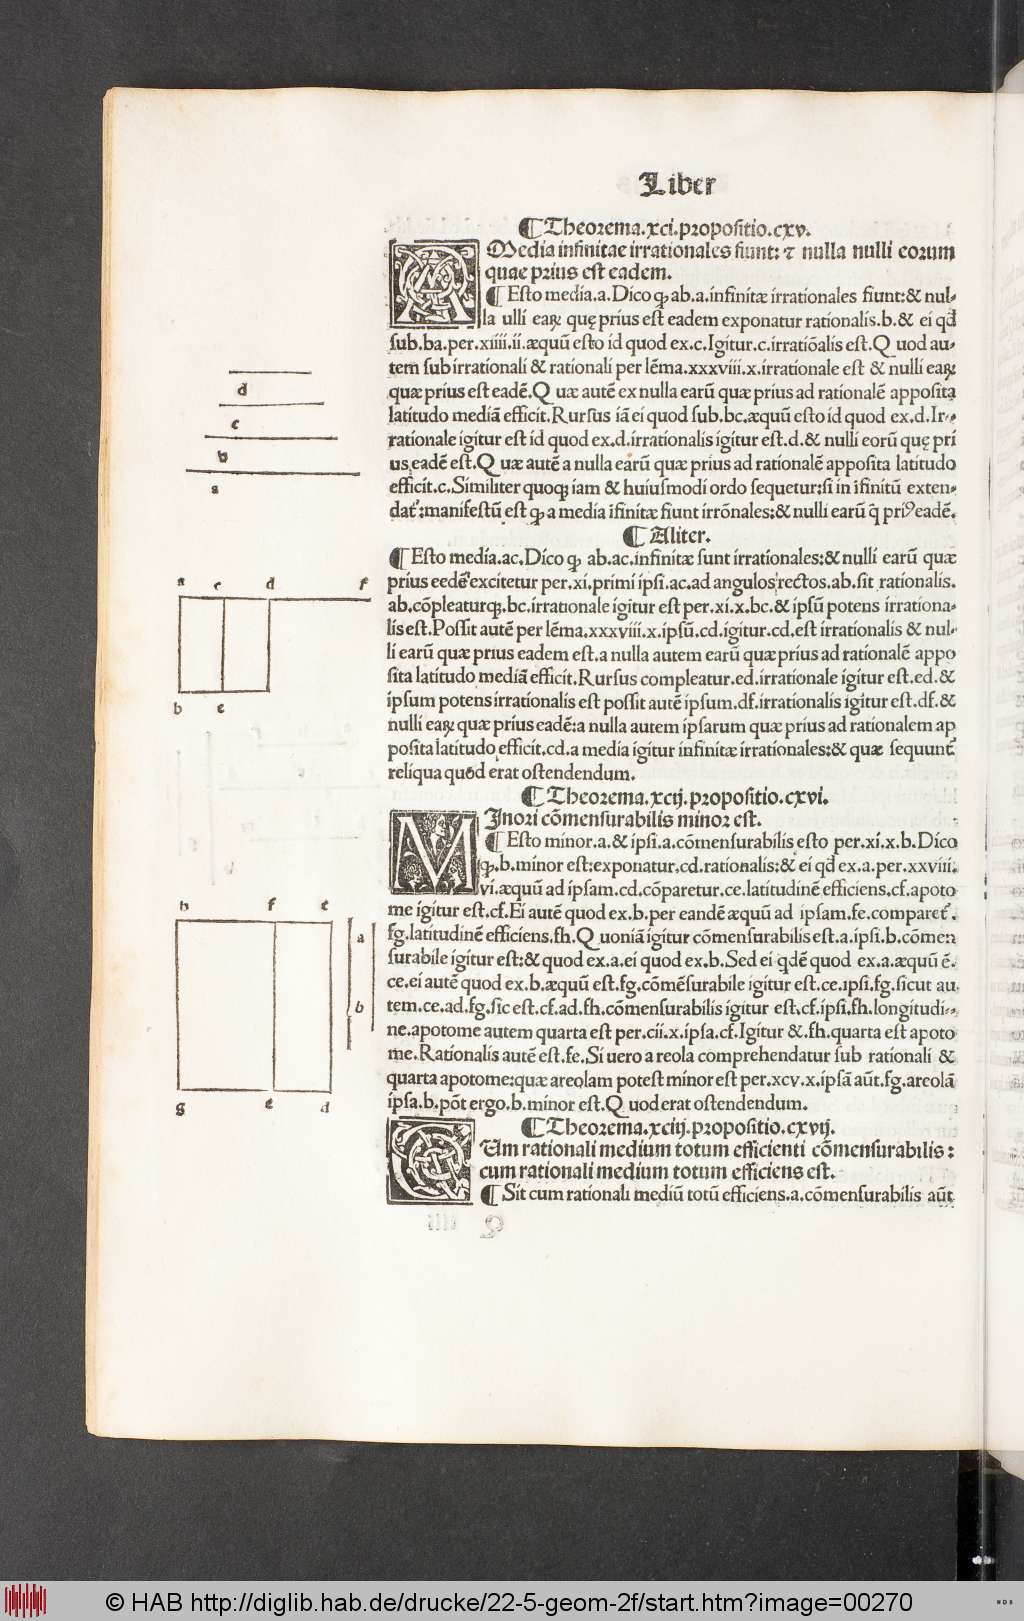 Liber
¶Theorema.xci.propositio.cxv.
A Media infinitae irrationales fiunt: ⁊ nulla nulli eorum
quae prius est eadem.
¶Esto media.a.Dico ꝙ ab.a.infinitæ irrationales fiunt:& nul-
la ulli earꝝ quę prius est eadem exponatur rationalis.b.& ei qđ
sub.ba.per.xiiii.ii.æquũ esto id quod ex.c.Igitur.c.irratiõalis est.Quod au-
tem sub irrationali & rationali per lẽma.xxxviii.x.irrationale est & nulli earꝝ
quæ prius est eadẽ.Quæ autẽ ex nulla earũ quæ prius ad rationalẽ apposita
latitudo mediã efficit.Rursus iã ei quod sub.bc.æquũ esto id quod ex.d.Ir-
rationale igitur est id quod ex.d.irrationalis igitur est.d.& nulli eorũ quę pri
us eadẽ est.Quæ autẽ a nulla earũ quæ prius ad rationalẽ apposita latitudo
efficit.c.Similiter quoqꝫ iam & huiusmodi ordo sequetur:si in ĩfinitũ exten-
dat᷑:manifestũ est ꝙ a media ĩfinitæ fiunt irrõnales:& nulli earũ q̃ priꝰ eadẽ.
¶Aliter.
¶Esto media.ac.Dico ꝙ ab.ac.infinitæ sunt irrationales:& nulli earũ quæ
prius eedẽ excitetur per.xi.primi ipsi.ac.ad angulos rectos.ab.sit rationalis.
ab.cõpleaturqꝫ.bc.irrationale igitur est per.xi.x.bc.& ipsũ potens irrationa-
lis est.Possit autẽ per lẽma.xxxviii.x.ipsũ.cd.igitur.cd.est irrationalis & nul-
li earũ quæ prius eadem est.a nulla autem earũ quæ prius ad rationalẽ appo
sita latitudo mediã efficit.Rursus compleatur.ed.irrationale igitur est.ed.&
ipsum potens irrationalis est possit autẽ ipsum.df.irrationalis igitur est.df.&
nulli earꝝ quæ prius eadẽ:a nulla autem ipsarum quæ prius ad rationalem ap
posita latitudo efficit.cd.a media igitur infinitæ irrationales:& quæ sequunt᷑
reliqua quod erat ostendendum.
¶Theorema.xcij.propositio.cxvi.
M Inori cõmensurabilis minor est.
¶Esto minor.a.& ipsi.a.cõmensurabilis esto per.xi.x.b.Dico
ꝙ.b.minor est:exponatur.cd.rationalis:& ei qđ ex.a.per.xxviii.
vi.æquũ ad ipsam.cd.cõparetur.ce.latitudinẽ efficiens.cf.apoto
me igitur est.cf.Ei autẽ quod ex.b.per eandẽ æquũ ad ipsam.fe.comparet᷑.
fg.latitudinẽ efficiens.fh.Quoniã igitur cõmensurabilis est.a.ipsi.b.cõmen
surabile igitur est:& quod ex.a.ei quod ex.b.Sed ei qdẽ quod ex.a.æquũ ẽ.
ce.ei autẽ quod ex.b.æquũ est.fg.cõmẽsurabile igitur est.ce.ipsi.fg.sicut au
tem.ce.ad.fg.sic est.cf.ad.fh.cõmensurabilis igitur est.cf.ipsi.fh.longitudi-
ne.apotome autem quarta est per.cii.x.ipsa.cf.Igitur &.fh.quarta est apoto
me.Rationalis autẽ est.fe.Si uero areola comprehendatur sub rationali &
quarta apotome:quæ areolam potest minor est per.xcv.x.ipsã aũt.fg.areolã
ipsa.b.põt ergo.b.minor est.Quod erat ostendendum.
¶Theorema.xciij.propositio.cxvij.
C Um rationali medium totum efficienti cõmensurabilis:
cum rationali medium totum efficiens est.
¶Sit cum rationali mediũ totũ efficiens.a.cõmensurabilis aũt
d
c
b
a
a c d f
b e
h f c
a
b
g e d
© HAB http://diglib.hab.de/drucke/22-5-geom-2f/start.htm?image=00270